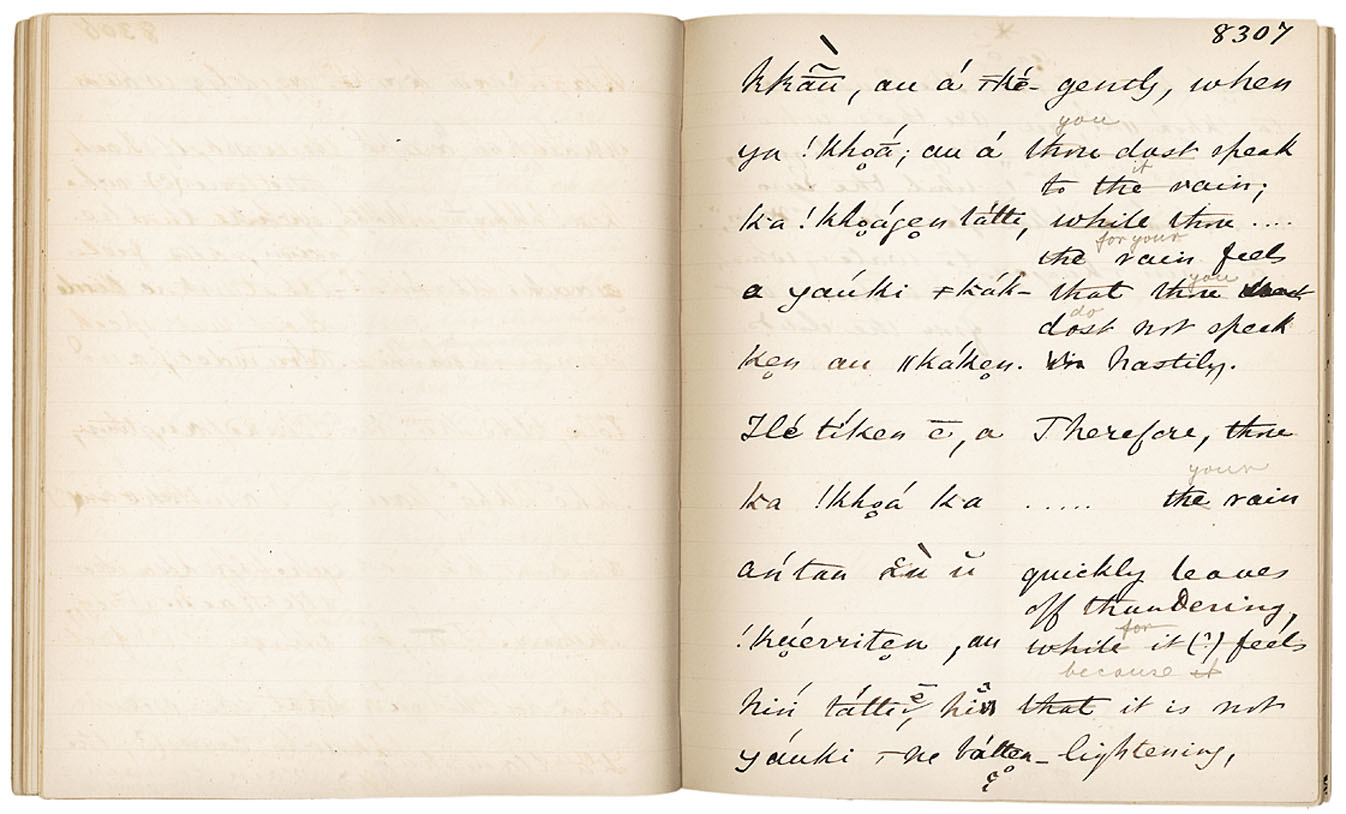 8307
kkãũ, au á ǂké- gently, when
you
ya !khoá; au á thou dost speak
it
to the rain;
ka !khoágen tátti, while thou ....
for your
the rain feels
a yaúki ǂkák- that thou
you
do
dost not speak
ken au ǁkáken. hastily.
Hé tíken ē, a Therefore, thou
your
ka !khoá ka ..... the rain
ańtan ŭ quickly leaves
off thundering,
for
!kúerriten, au while it (?) feels
because it
hiń tátti ē, hiń that it is not
yáuki ne bátten- lightening,